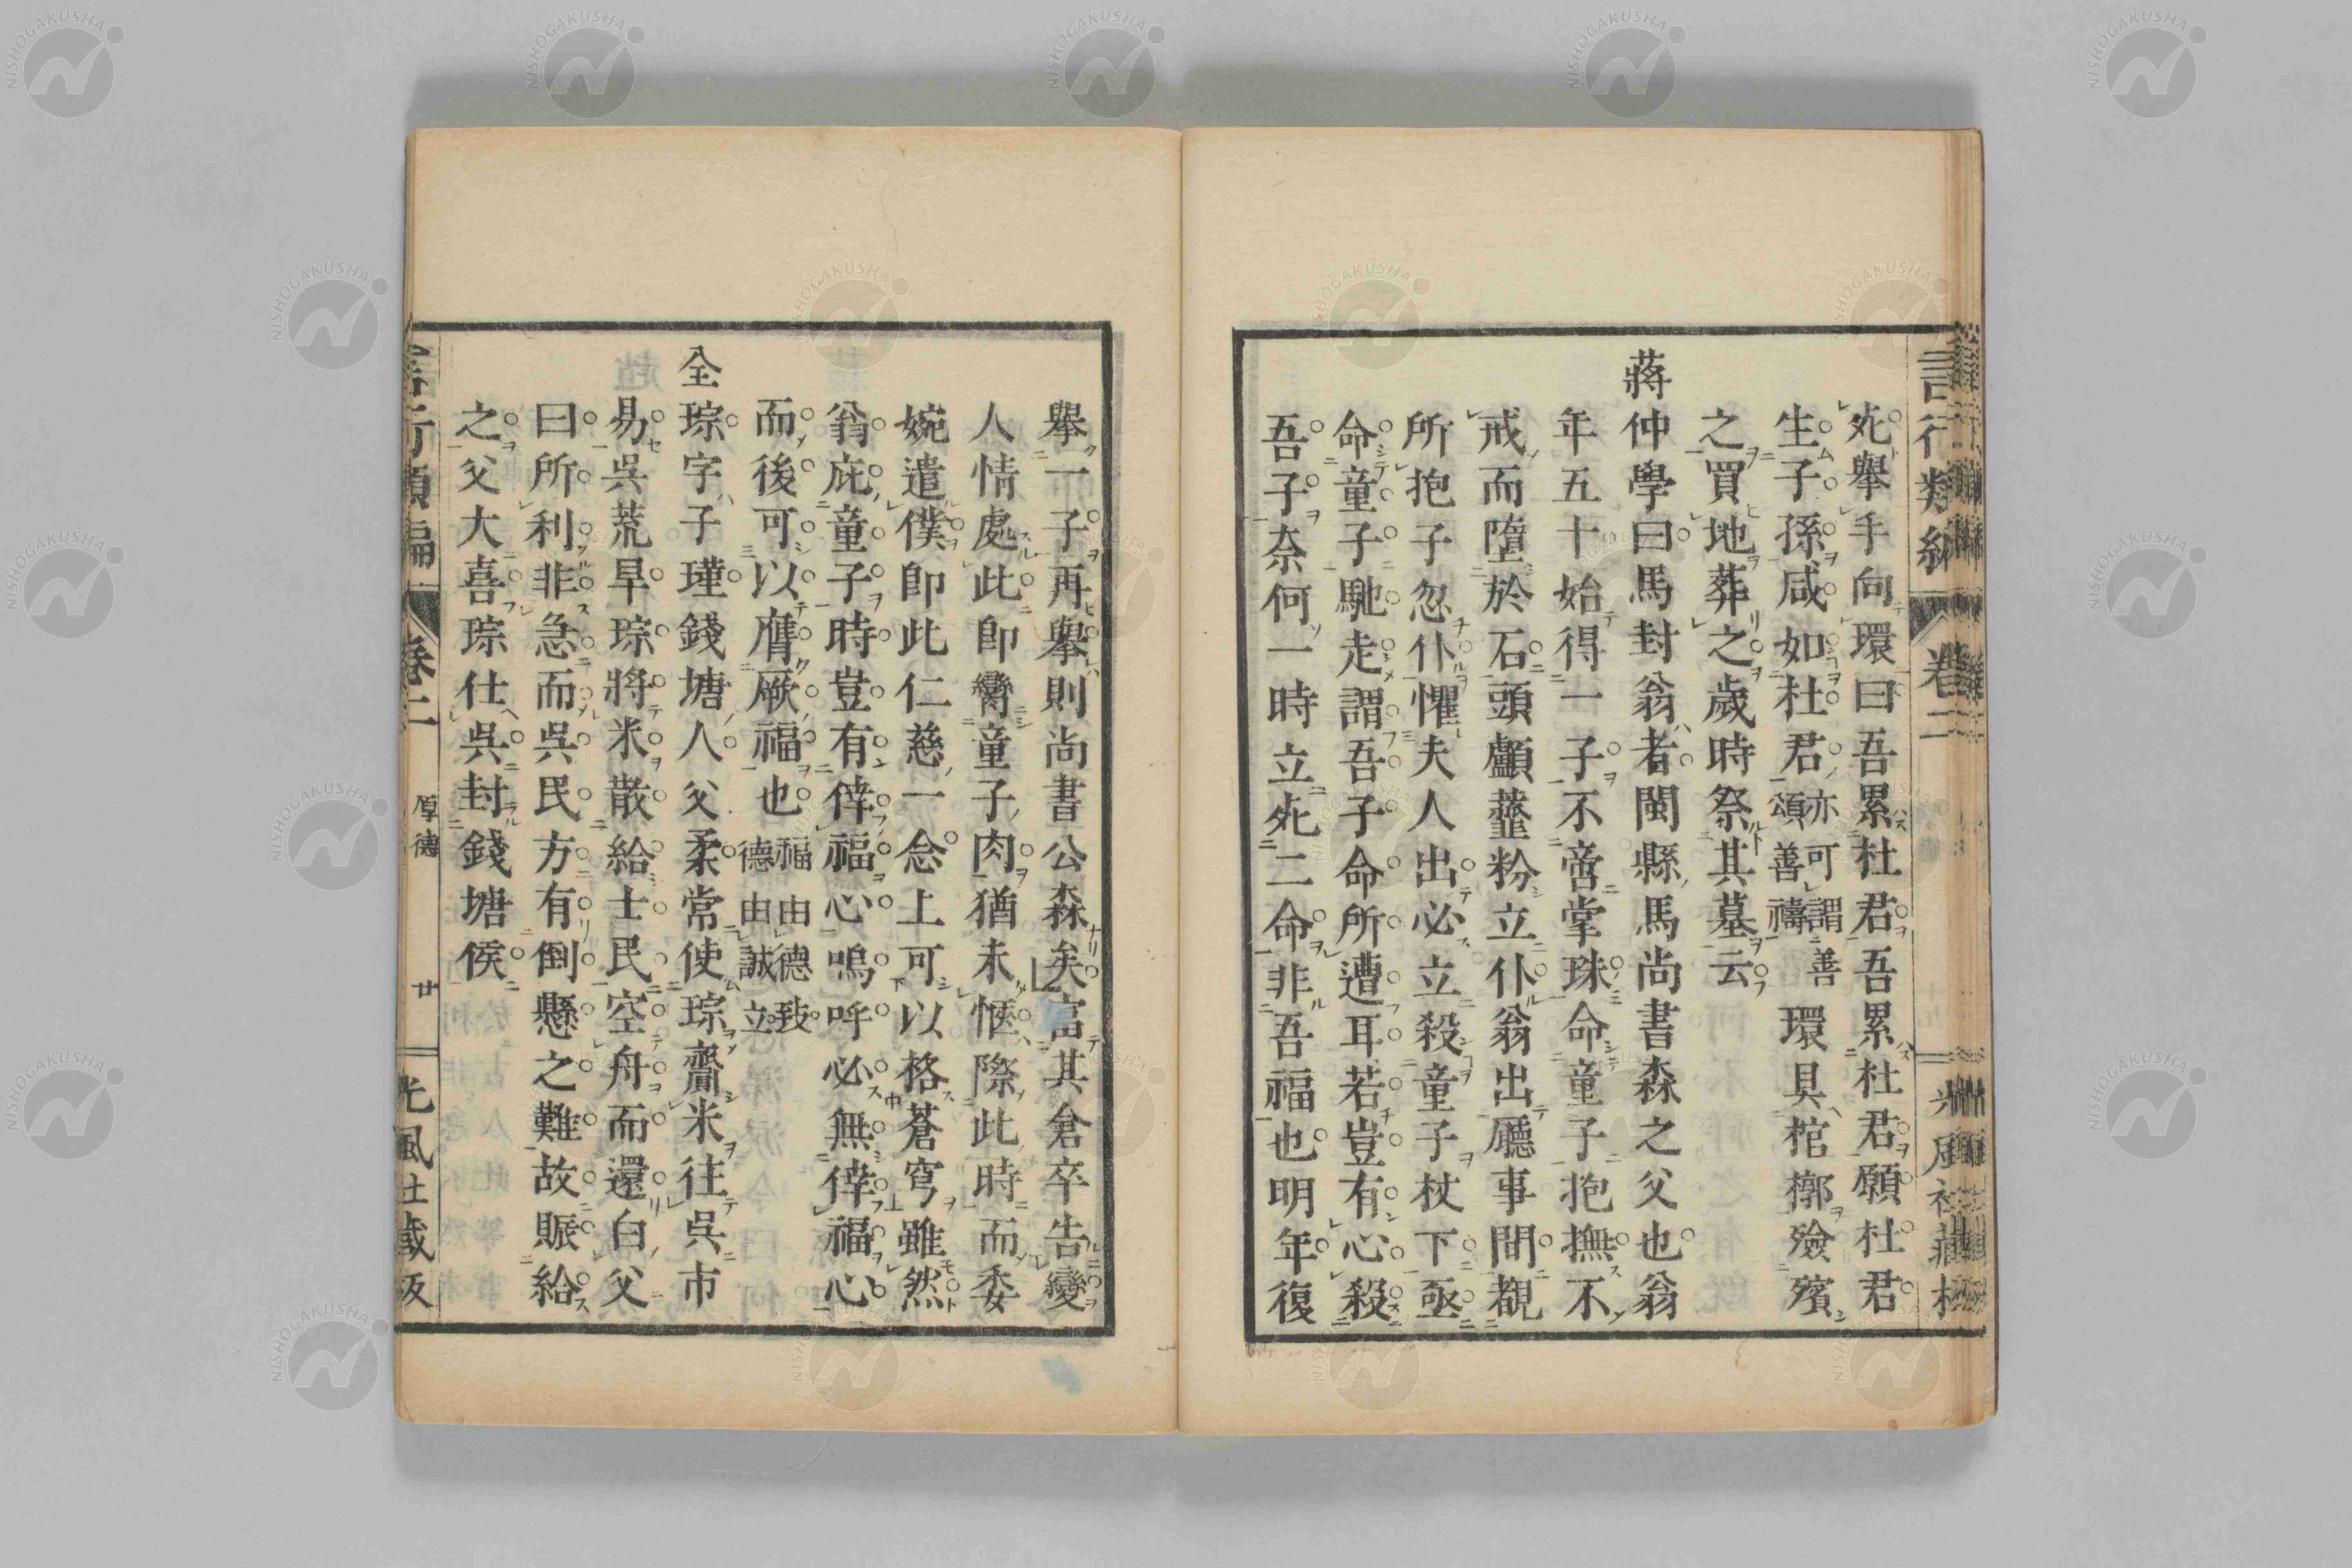 言行類編
卷二
死擧手向環曰吾累杜君吾累杜君願杜君
生子孫咸如杜君亦可謂善頌善禱環具棺槨殮殯
之買地葬之歲時祭其墓云
蔣仲學曰馬封翁者閩縣馬尚書森之父也翁
年五十始得一子不啻掌珠命童子抱撫不
戒而墮於石頭顱虀粉立仆翁出廳事間覩
所抱子忽仆懼夫人出必立殺童子杖下亟
命童子馳走謂吾子命所遭耳若豈有心殺
吾子奈何一時立死二命非吾福也明年復
擧一子再擧則尚書公森矣當其倉卒告變
人情處此卽臠童子肉猶未愜際此時而委
婉遣僕卽此仁慈一念上可以格蒼穹雖然
翁庇童子時豈有倖福心嗚呼必無倖福心
而後可以膺厥福也福由德致德由誠立
全琮字子璜錢塘人父柔常使琮齎米往吳市
易吳荒旱琮將米散給士民空舟而還白父
曰所利非急而吳民方有倒懸之難故賑給
之父大喜琮仕吳封錢塘侯
言行類編
卷二
厚德
廿
光風社藏版